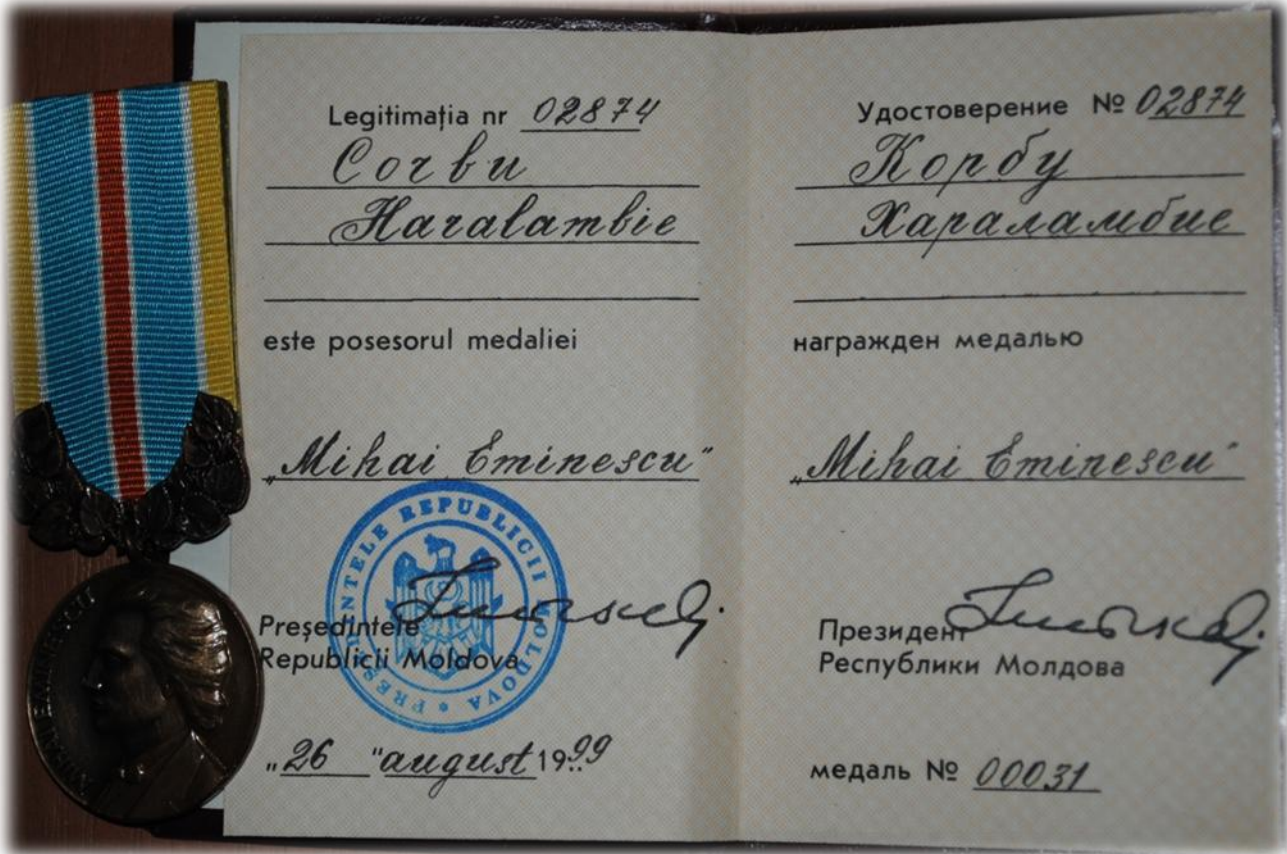 Legitimația nr 02874
Corbu
Haralambie
este posesorul medaliei
„Mihai Eminescu"
Președintele
Republicii Moldova
„26 "august 1999
PREȘEDINTELE REPUBLICII MOLDOVA
Удостоверение № 02874
Корбу
Хараламбие
награжден медалью
„Mihai Eminescu"
Президент
Республики Молдова
медаль № 00031
MIHAI EMINESCU